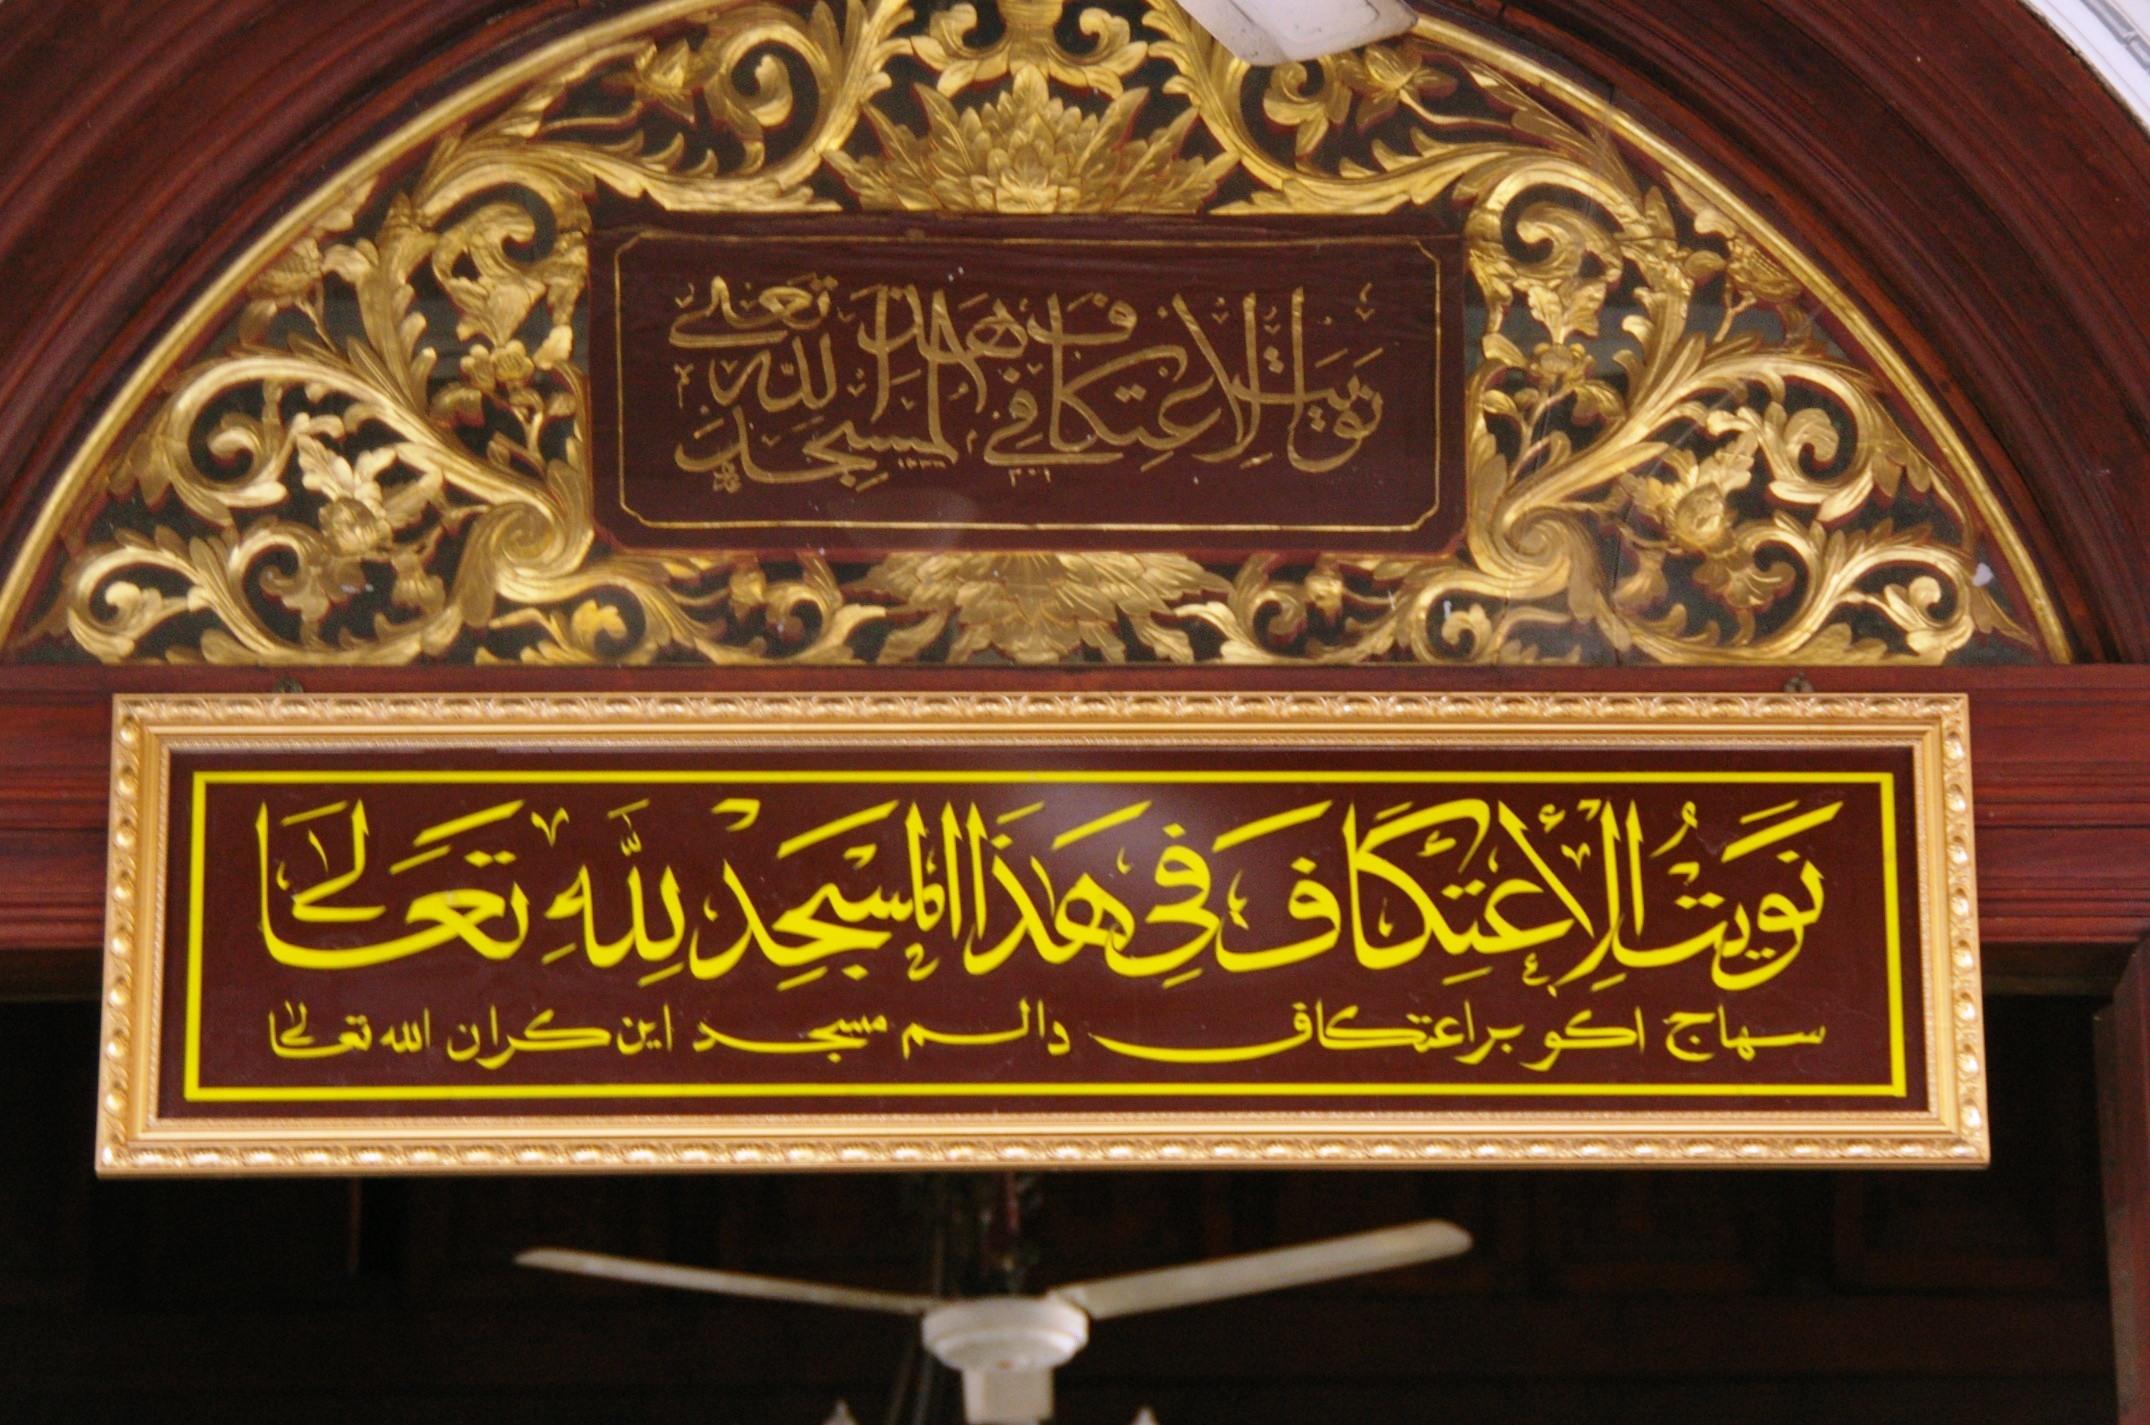 نويت الاعتكاف في هذا المسجد لله تعالى
نَوَيْتُ الْإِعْتِكَافَ فِي هَذَا الْمَسْجِدِ لِلَّهِ تَعَالَى
سهاج اكو براعتكاف دالم مسجد اين كران الله تعالى